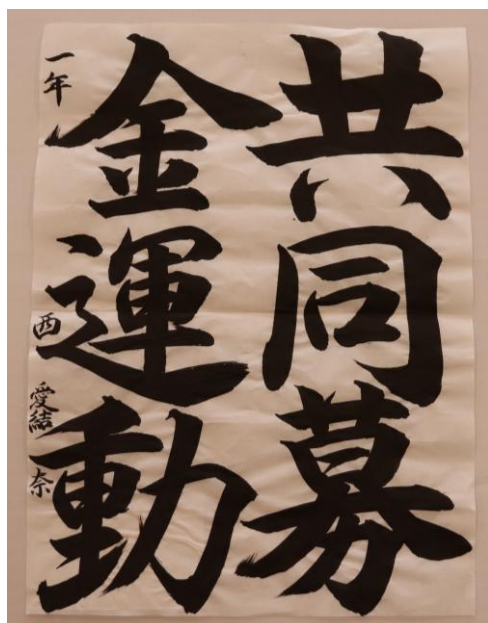 共同募
金運動
一年 西 愛結奈